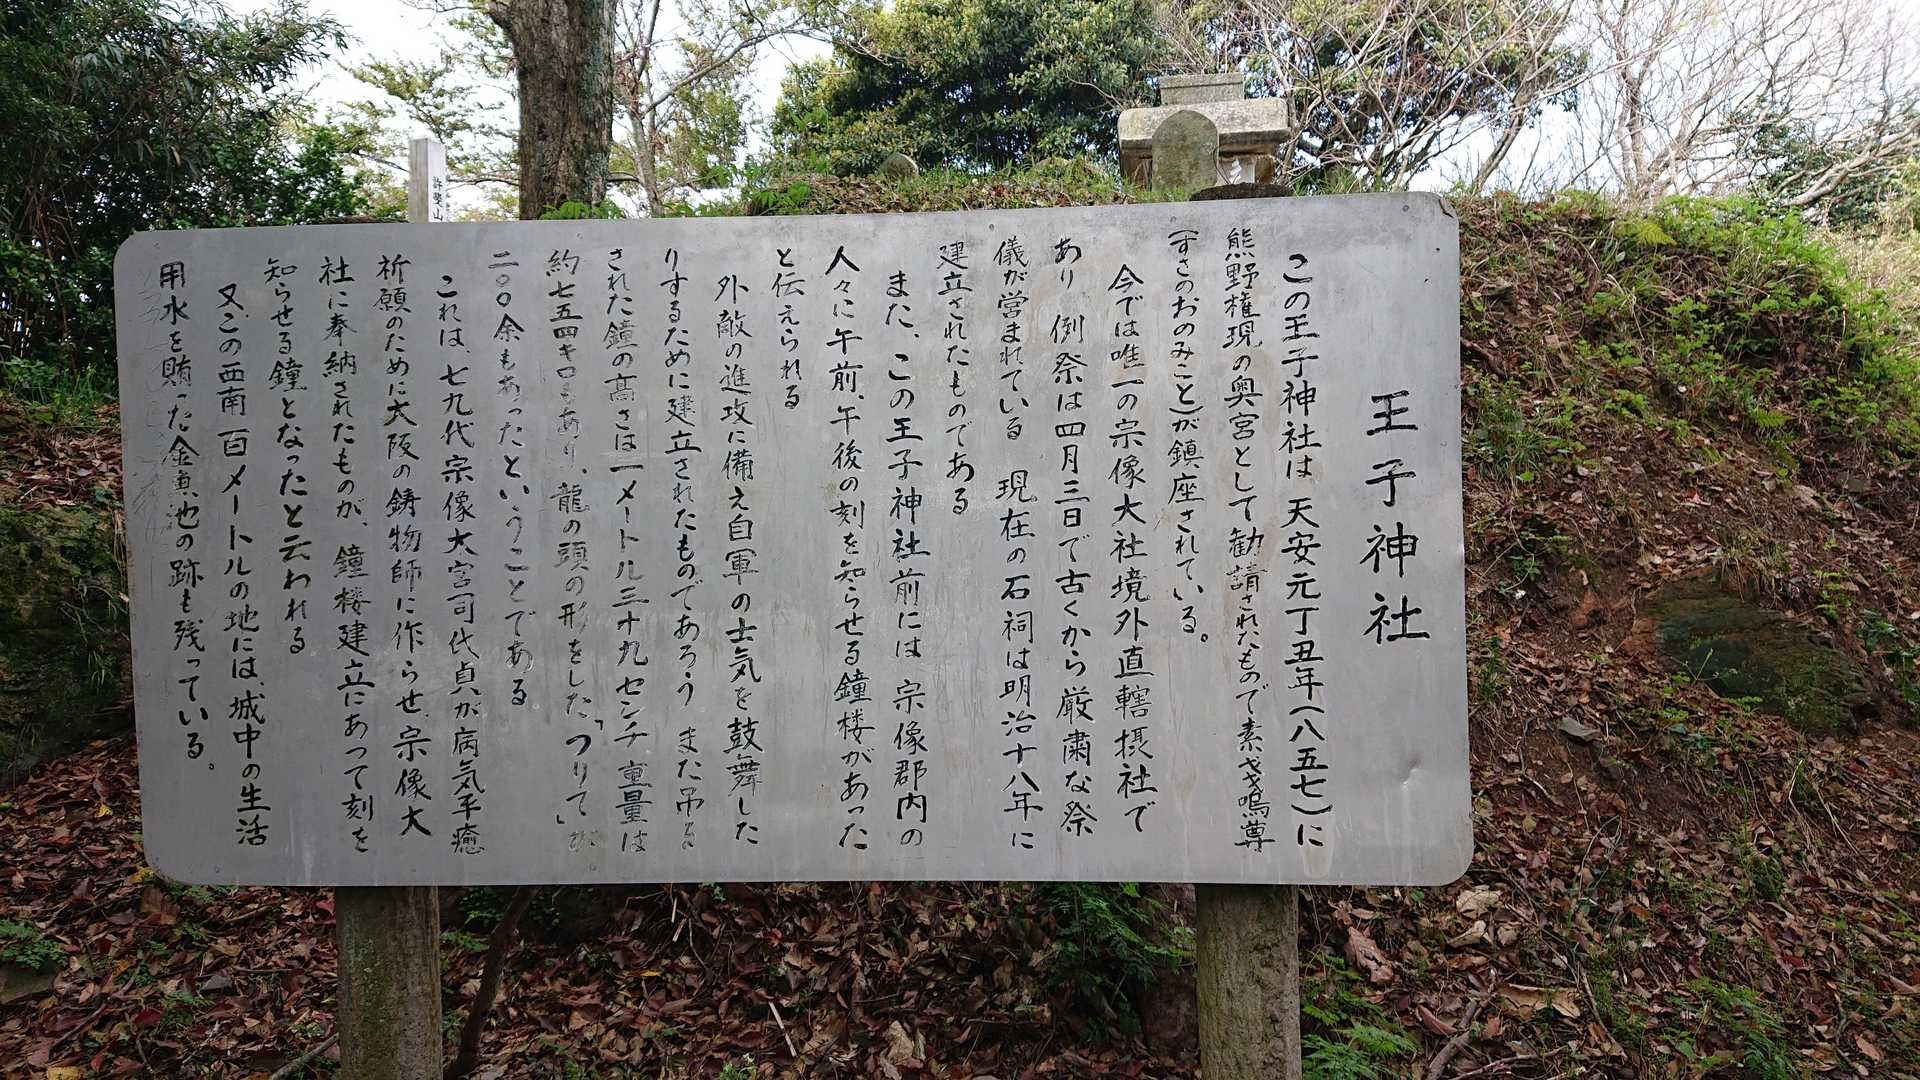 王子神社
この王子神社は 天安元丁丑年(八五七)に
熊野権現の奥宮として勧請されたもので素戔嗚尊
(すさのおのみこと)が鎮座されている。
今では唯一の宗像大社境外直轄摂社で
あり 例祭は四月三日で古くから厳粛な祭
儀が営まれている 現在の石祠は明治十八年に
建立されたものである
また、この王子神社前には宗像郡内の
人々に午前、午後の刻を知らせる鐘楼があった
と伝えられる
外敵の進攻に備え自軍の士気を鼓舞した
りするために建立されたものであろう また吊る
された鐘の高さは一メートル三十九センチ重量は
約七五四キロもあり、龍の頭の形をした「つりて」が
二〇〇余もあったということである
これは、七九代宗像大宮司氏貞が病気平癒
祈願のために大阪の鋳物師に作らせ、宗像大
社に奉納されたものが、鐘楼建立にあって刻を
知らせる鐘となったと云われる
又この西南百メートルの地には、城中の生活
用水を賄った金魚池の跡も残っている。
許斐山